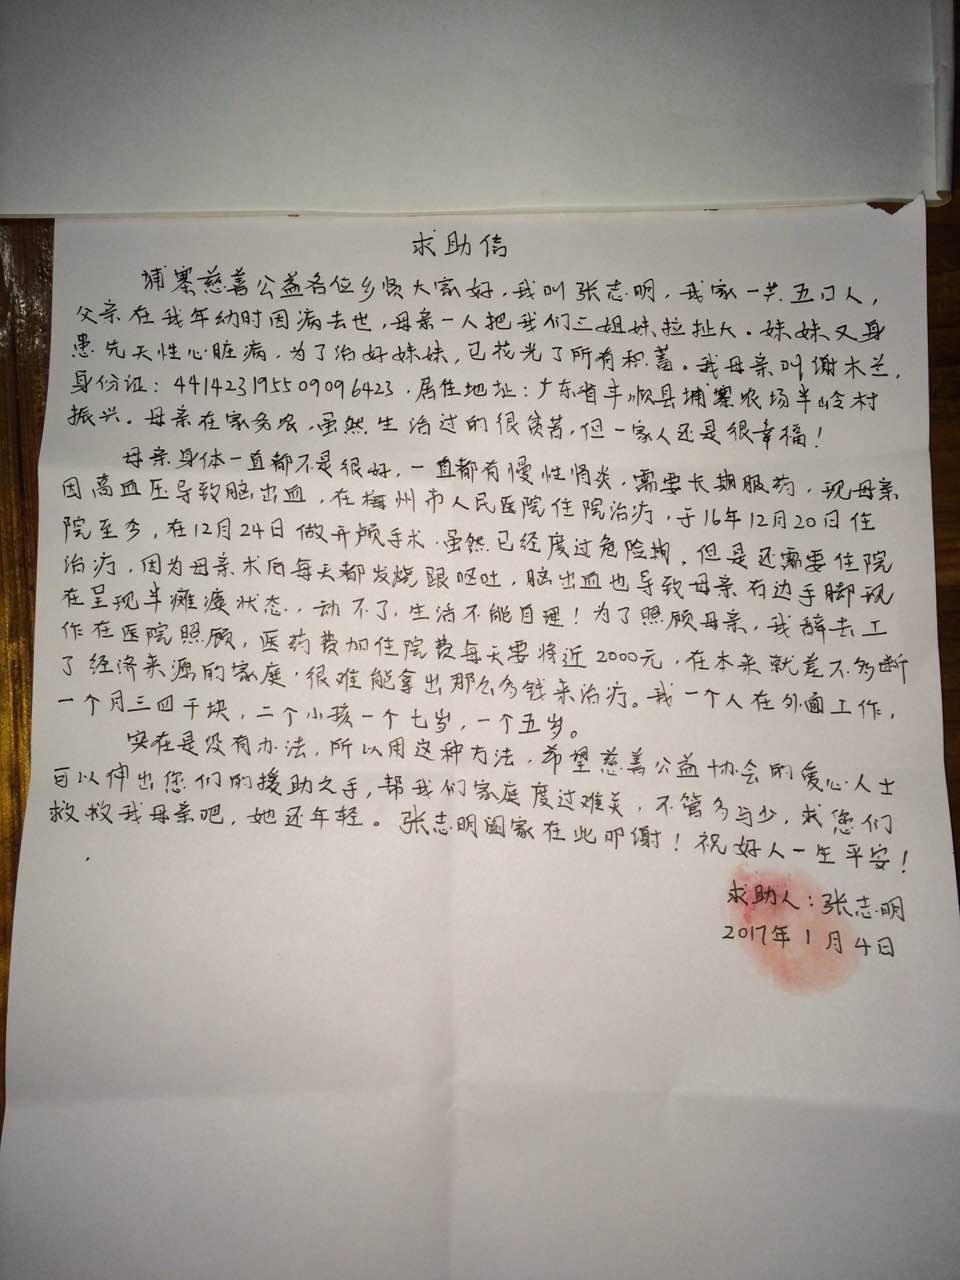 求助信
埔寨慈善公益各位乡贤大家好，我叫张志明，我家一共五口人，
父亲在我年幼时因病去也，母亲一人把我们三姐妹拉扯大。妹妹又身
患先天性心脏病，为了治好妹妹，已花光了所有积蓄。我母亲叫谢木兰，
身份证：441423195509096423，居住地址：广东省丰顺县埔寨农场半岭村
振兴。母亲在家务农，虽然生活过的很贫苦，但一家人还是很幸福！
母亲身体一直都不是很好，一直都有慢性肾炎，需要长期服药，现母亲
因高血压导致脑出血，在梅州市人民医院住院治疗，于16年12月20日住
院至今，在12月24日做开颅手术，虽然已经度过危险期，但是还需要住院
治疗，因为母亲术后每天都发烧跟呕吐，脑出血也导致母亲右边手脚现
在呈现半瘫痪状态，动不了，生活不能自理！为了照顾母亲，我辞去工
作在医院照顾，医药费加住院费每天要将近2000元，在本来就差不多断
了经济来源的家庭，很难能拿出那么多钱来治疗。我一个人在外面工作，
一个月三四千块，二个小孩一个七岁，一个五岁。
实在是没有办法，所以用这种方法，希望慈善公益协会的爱心人士
可以伸出您们的援助之手，帮我们家庭度过难关，不管多与少，求您们
救救我母亲吧，她还年轻。张志明阖家在此叩谢！祝好人一生平安！
求助人：张志明
2017年1月4日